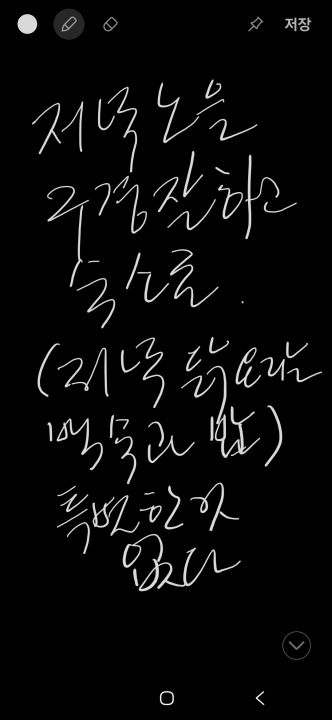 저장
저녁 노을
구경 잘하고
숙소로.
(저녁 닭요리는
백숙과 밥)
특별한 것
없다